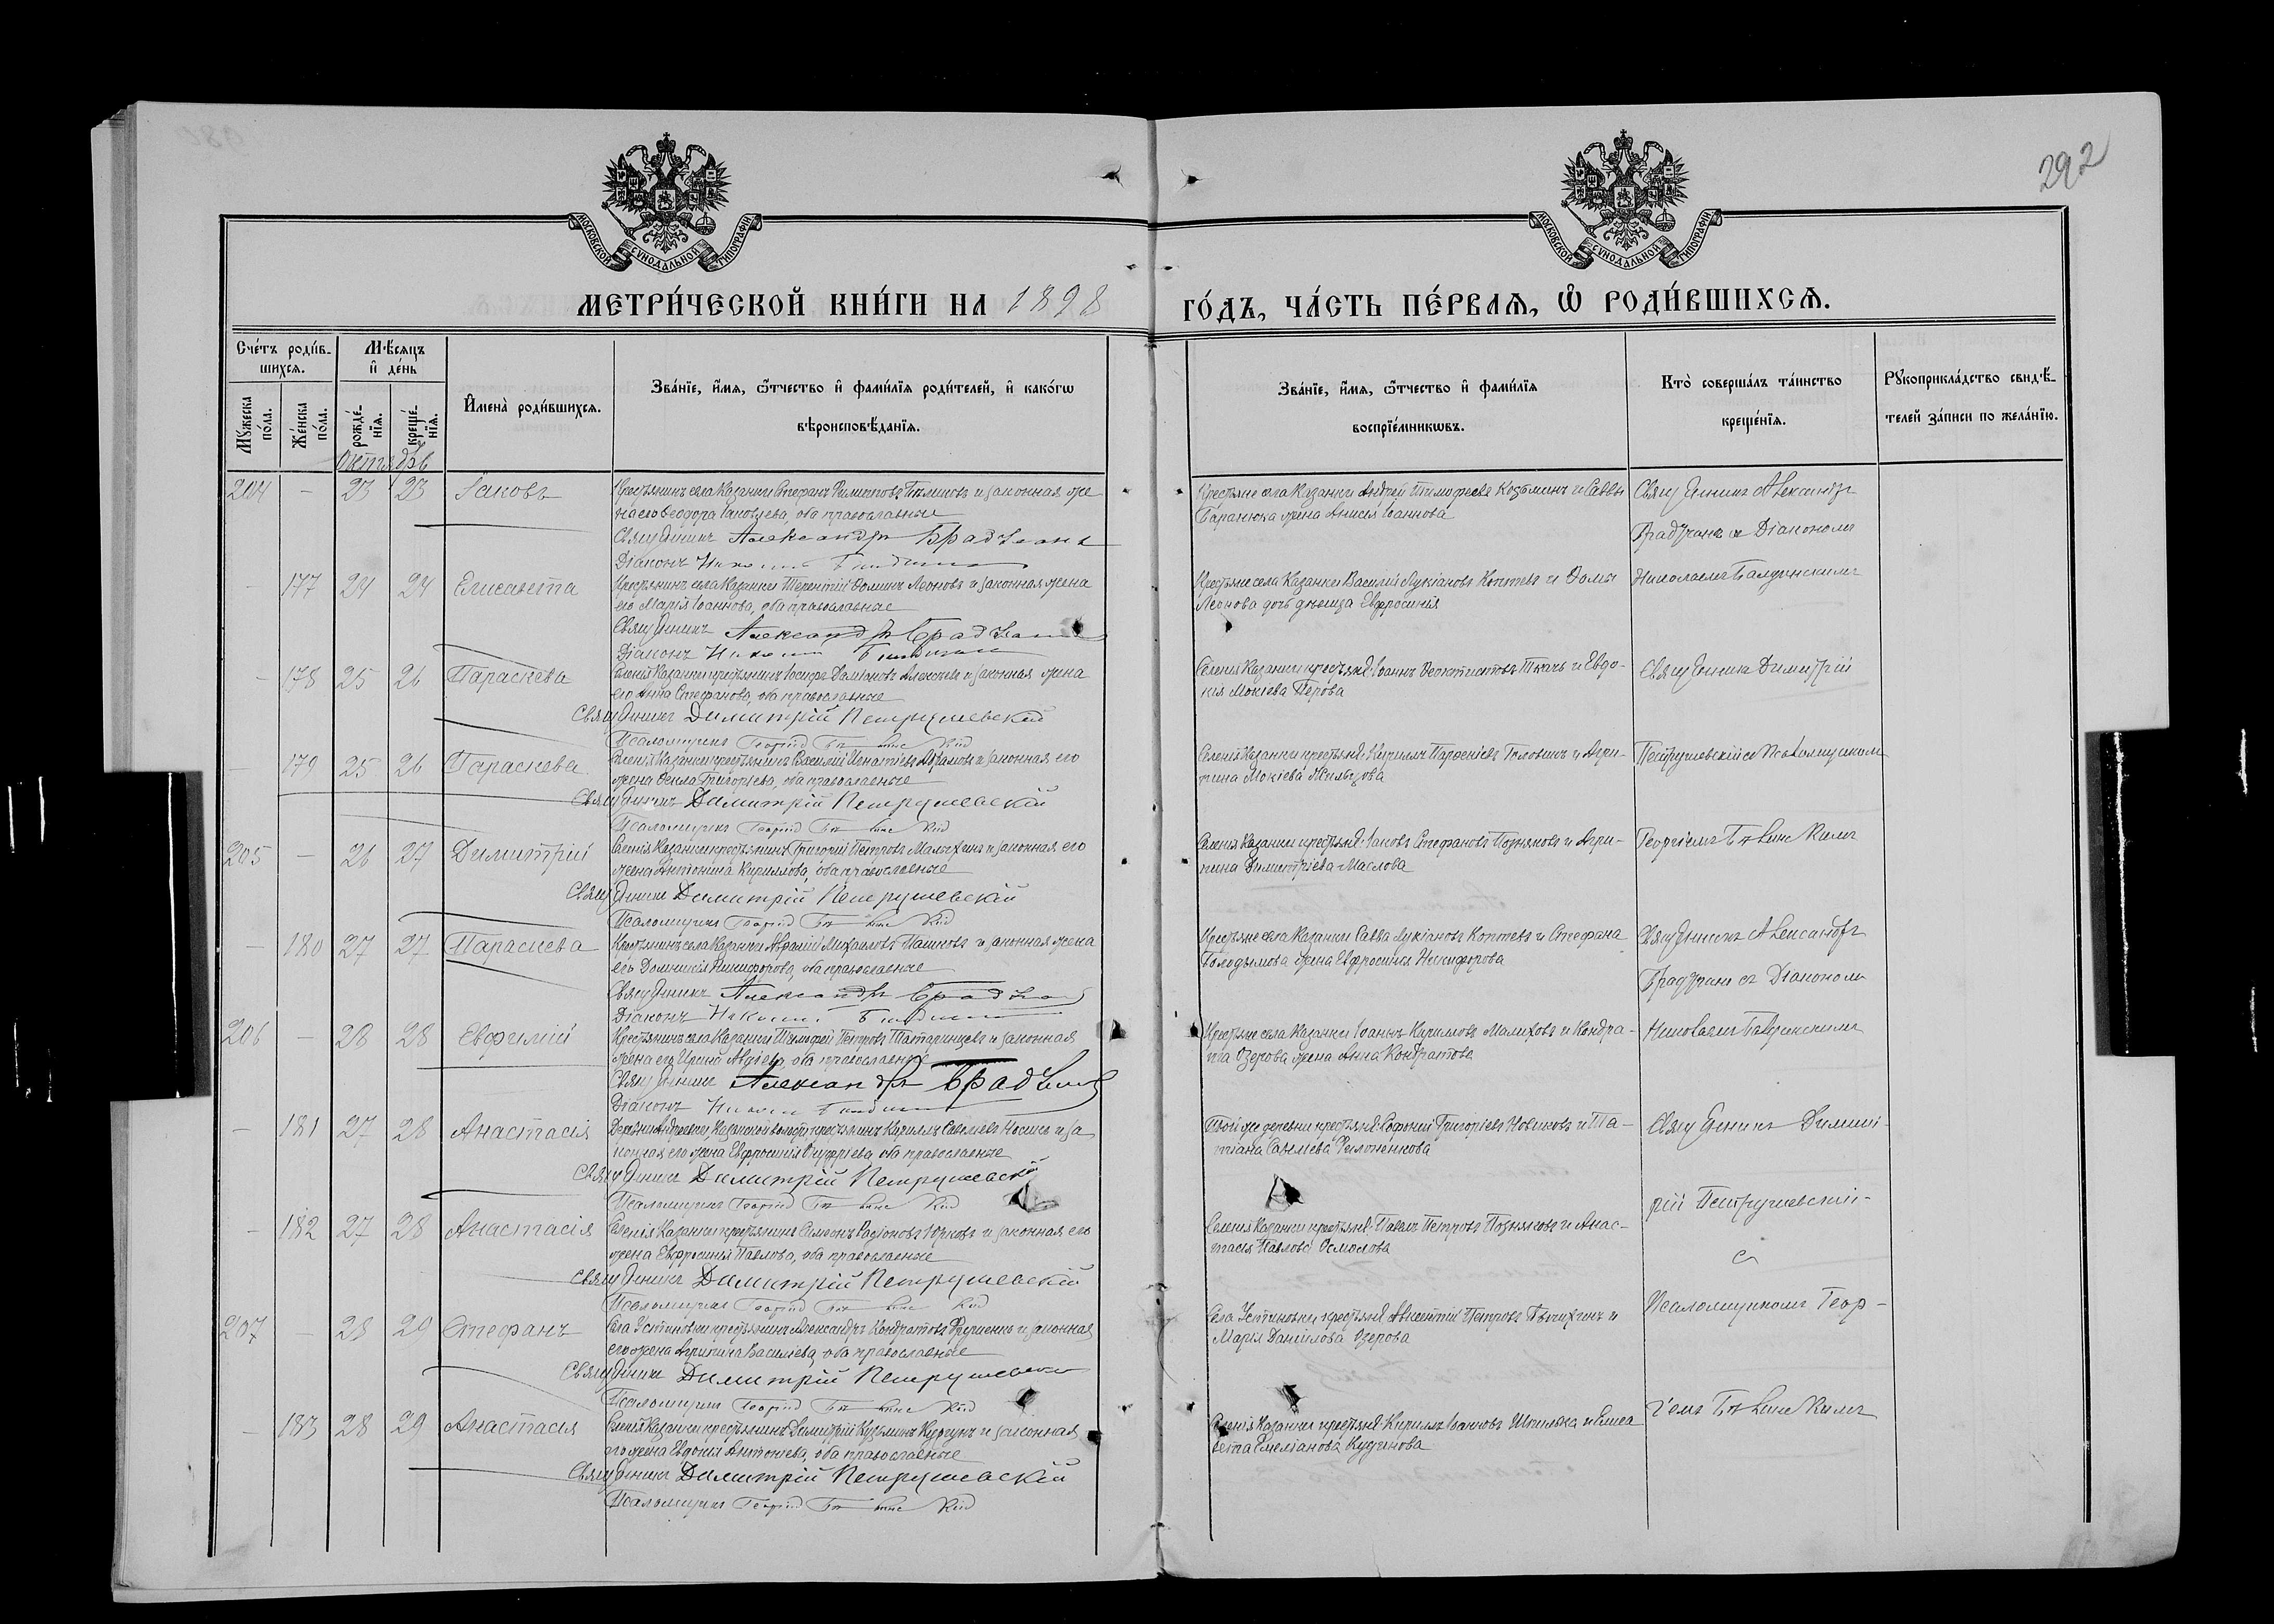 292
МОСКОВСКОЙ СѴНОДАЛЬНОЙ ТИПОГРАФІИ
МОСКОВСКОЙ СѴНОДАЛЬНОЙ ТИПОГРАФІИ
МЕТРИ́ЧЕСКОЙ КНИ́ГИ НА 1898 ГО́ДЪ, ЧА́СТЬ ПЕ́РВАѦ, Ѽ РОДИ́ВШИХСѦ.
Сче́тъ роди́в-
шихсѧ.
Мѣ́сѧцъ
и҆ де́нь
Мꙋ́жеска
по́ла.
Же́нска
по́ла.
рожде́-
нїѧ.
креще́-
нїѧ.
И҆мена̀ роди́вшихсѧ.
Зва́нїе, и҆́мѧ, ѻ҆́тчество и҆ фами́лїѧ роди́телей, и҆ како́гѡ
вѣроисповѣ́данїѧ.
Зва́нїе, и҆́мѧ, ѻ҆́тчество и҆ фами́лїѧ
воспрїе́мникѡвъ.
Кто̀ соверша́лъ та́инство
креще́нїѧ.
Рꙋкоприкла́дство свидѣ́-
телей за́писи по жела́нїю.
Октябрь
204 - 23 23 Іаковъ
Крестьянинъ села Казанки Стефанъ Филиповъ и законная же
на его Ѳеодора Іаковлева, оба православные
Священникъ Александръ Брадучанъ
Діаконъ Николай
Крестьяне села Казанки Андрей Тимофеевъ Козьминъ и Саввы
Баранюка жена Анисія Іоаннова
Священникъ Александръ
Брадучанъ съ Діакономъ
- 177 24 24 Елисавета
Крестьянинъ села Казанки Терентій Ѳоминъ Леоновъ и законная жена
его Марія Іоаннова, оба православные
Священникъ Александръ Брадучанъ
Діаконъ Николай
Крестьяне села Казанки Василій Лукіановъ Коптевъ и Ѳомы
Леонова дочь дѣвица Евфросинія
Николаемъ
- 178 25 26 Параскева
Селенія Казанки крестьянинъ Іосифъ Даміановъ Алексѣевъ и законная жена
его Анна Стефанова, оба православные
Священникъ Димитрій Петрушевскій
Псаломщикъ Георгій
Селенія Казанки крестьяне: Іоаннъ Ѳеоктистовъ Ткачъ и Евдо-
кія Мокіева Перова
Священникъ Димитрій
- 179 25 26 Параскева
Селенія Казанки крестьянинъ Василій Игнатіевъ Абрамовъ и законная его
жена Ѳекла Григорьева, оба православные
Священникъ Димитрій Петрушевскій
Псаломщикъ Георгій
Селенія Казанки крестьяне: Кириллъ Парѳеніевъ Головинъ и Агри-
пина Мокіева
Петрушевскій съ Псаломщикомъ
205 - 26 27 Димитрій
Селенія Казанки крестьянинъ Григорій Петровъ Малыхинъ и законная его
жена Антонина Кириллова, оба православные
Священникъ Димитрій Петрушевскій
Псаломщикъ Георгій
Селенія Казанки крестьяне: Іаковъ Стефановъ Поздняковъ и Агри-
пина Димитріева Маслова
Георгіемъ
- 180 27 27 Параскева
Крестьянинъ села Казанки Аврамій Михаиловъ Пашковъ и законная жена
его Домникія Никифорова, оба православные
Священникъ Александръ Брадучанъ
Діаконъ Николай
Крестьяне села Казанки Савва Лукіановъ Коптевъ и Стефана
Володымова жена Евфросинія Никифорова
Священникъ Александръ
Брадучанъ съ Діакономъ
206 - 28 28 Евфимій
Крестьянинъ села Казанки Тимофей Петровъ Татаринцевъ и законная
жена его Ирина Авдіева, оба православные
Священникъ Александръ Брадучанъ
Діаконъ Николай
Крестьяне села Казанки Іоаннъ Кирилловъ Малиховъ и Кондра-
та Озерова жена Анна Кондратова
Николаемъ
- 181 27 28 Анастасія
Деревни Андреевки, Казанской волости крестьянинъ Кириллъ Савеліевъ Носикъ и за
конная его жена Евфросинія Онуфріева, оба православные
Священникъ Димитрій Петрушевскій
Псаломщикъ Георгій
Той же деревни крестьяне: Софоній Григоріевъ Новиковъ и Та-
тіана Савеліева Филоненкова
Священникъ Димит-
рій Петрушевскій
- 182 27 28 Анастасія
Селенія Казанки крестьянинъ Симеонъ Родіоновъ Юрковъ и законная его
жена Евфросинія Павлова, оба православные
Священникъ Димитрій Петрушевскій
Псаломщикъ Георгій
Селенія Казанки крестьяне: Павелъ Петровъ Поздняковъ и Анас-
тасія Павлова Осмолова
съ
207 - 28 29 Стефанъ
Села Устиновки крестьянинъ Александръ Кондратовъ и законная
его жена Агрипина Василіева, оба православные
Священникъ Димитрій Петрушевскій
Псаломщикъ Георгій
Села Устиновки крестьяне: Авксентій Петровъ и
Марія Даніилова Озерова
Псаломщикомъ Геор-
- 183 28 29 Анастасія
Селенія Казанки крестьянинъ Димитрій Кузьминъ и законная
его жена Евдокія Антоніева, оба православные
Священникъ Димитрій Петрушевскій
Псаломщикъ Георгій
Селенія Казанки крестьяне: Кириллъ Іоанновъ Шпилька и Елиса
вета Емеліанова
гіемъ